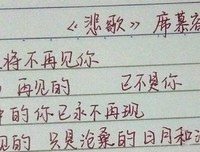 《悲歌》 席慕容
将不再见你
再见的 已不是你
的你已永不再现
见的 只是沧桑的日月和